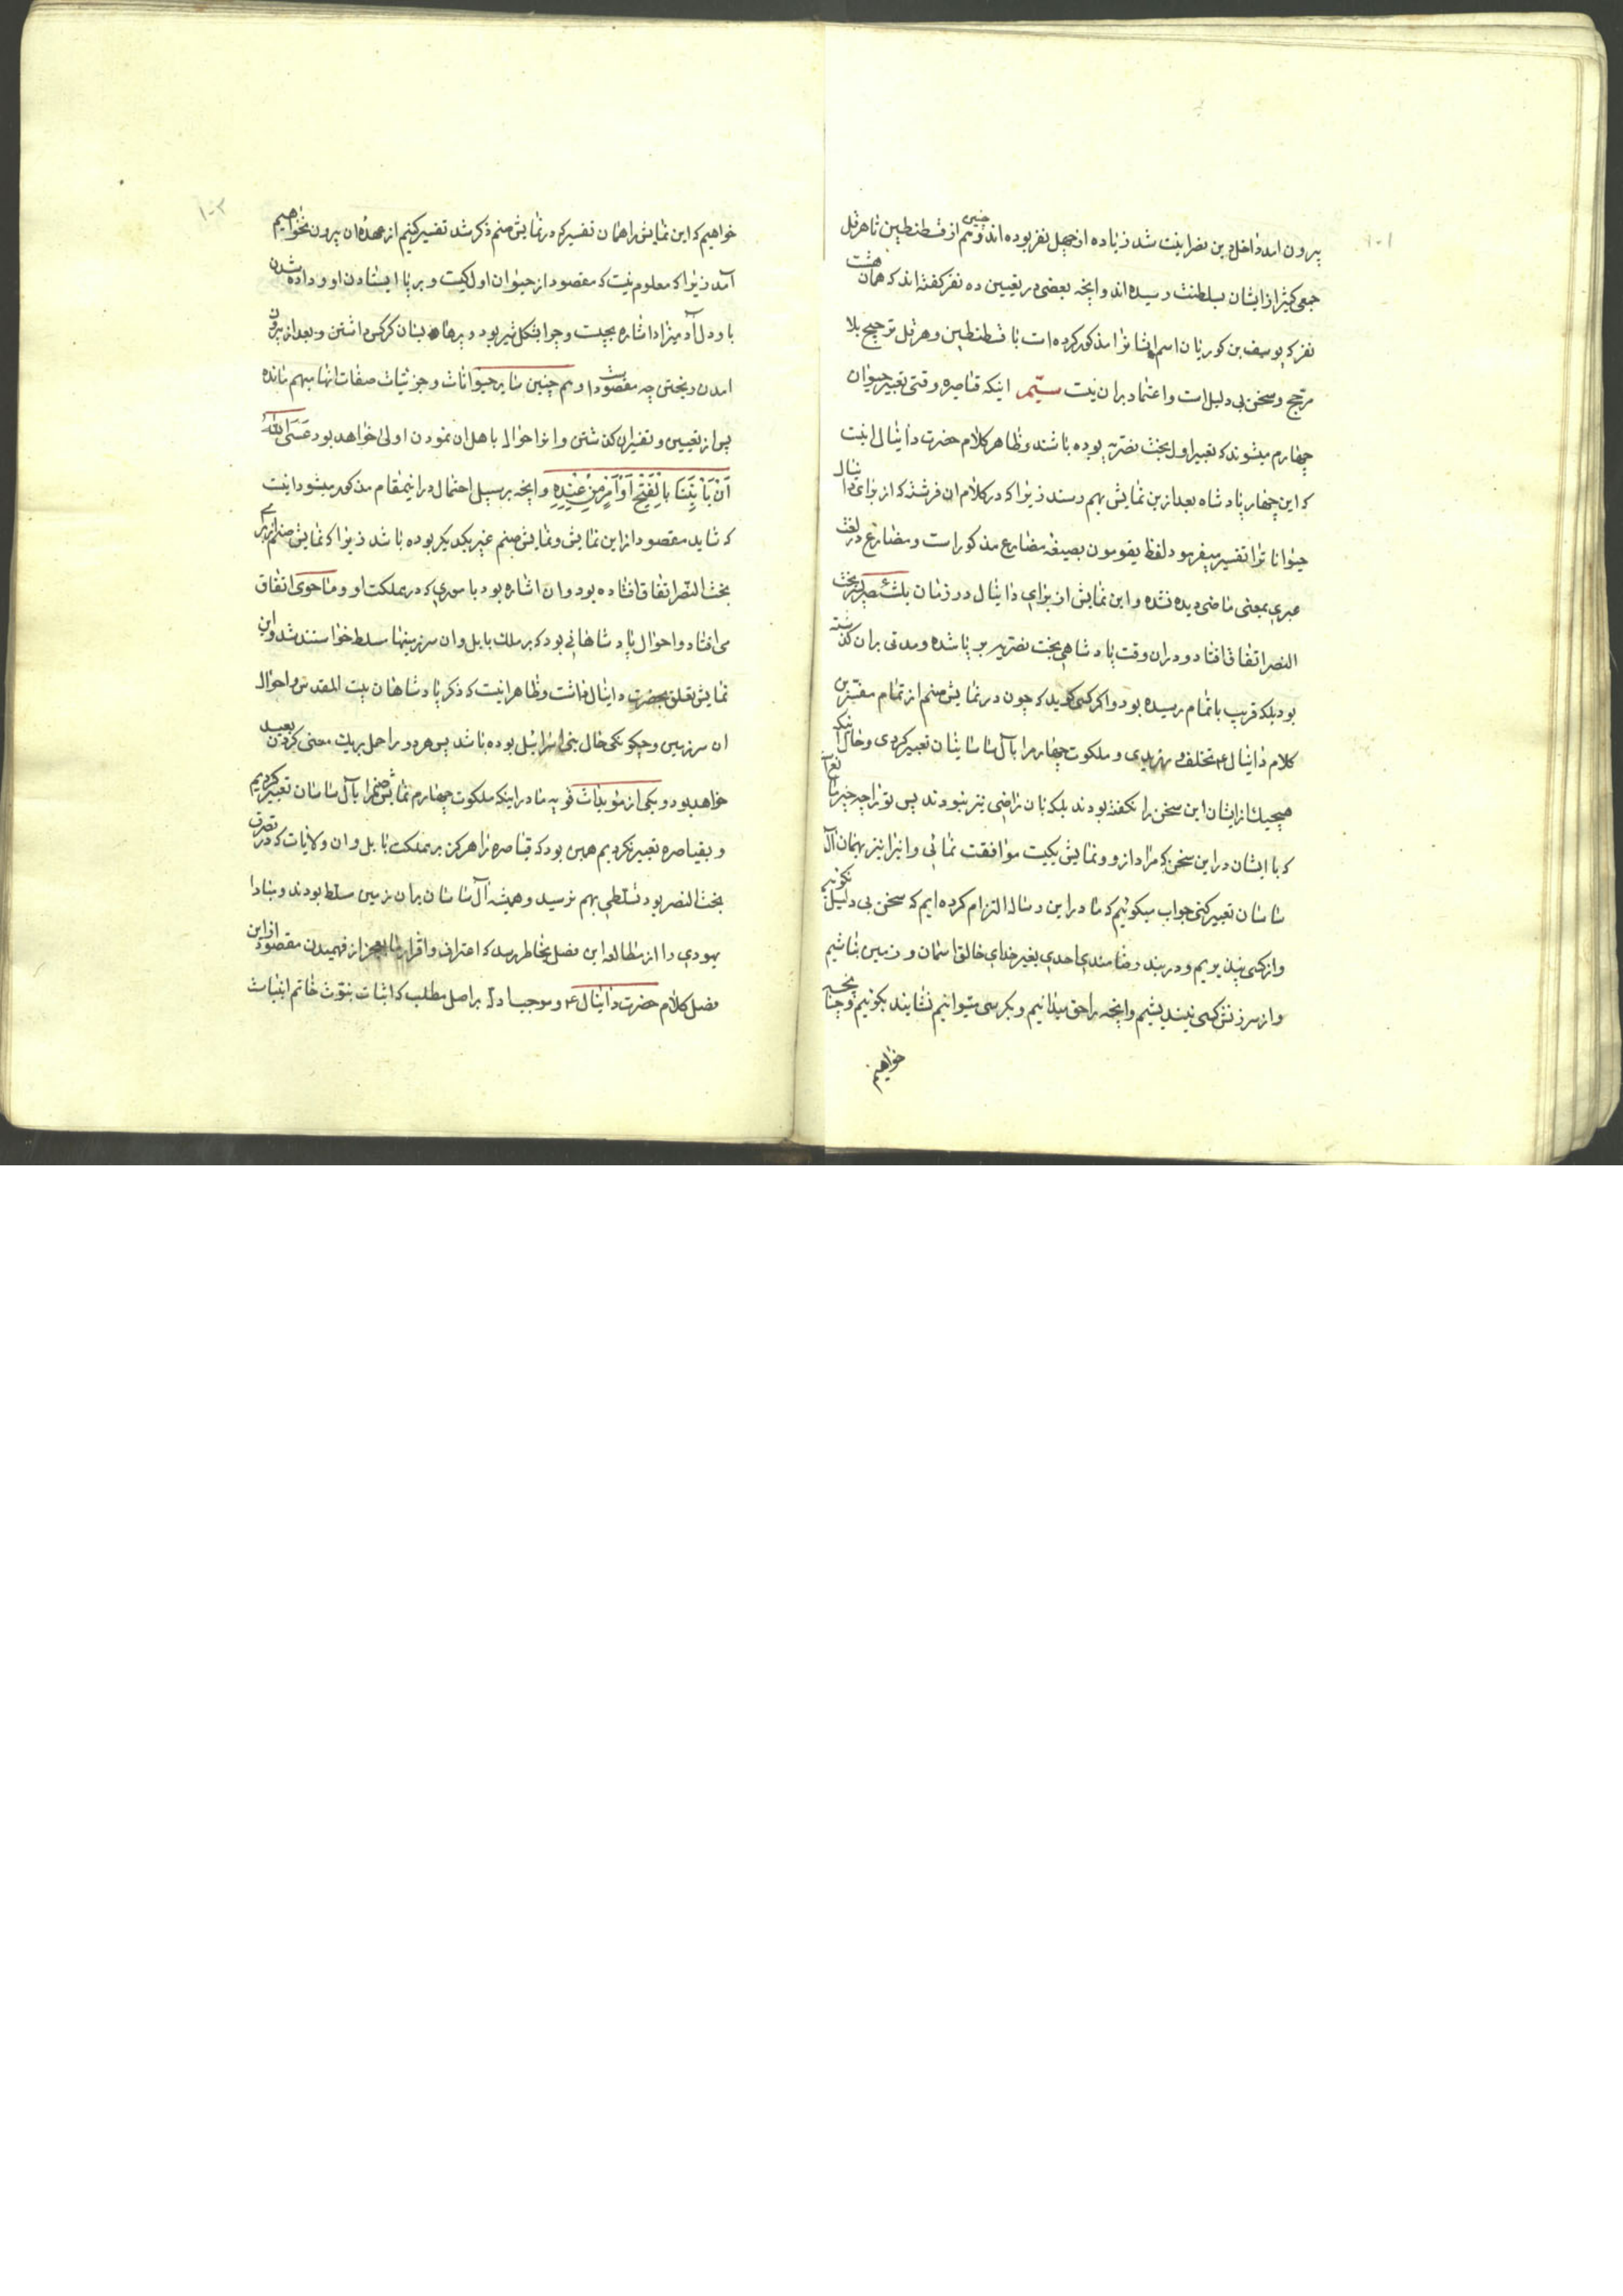 ۱۰۱
بیرون امد و داخل دین نصرانیت شد زیاده از چهل نفر بوده اند و همچنین از قسطنطین تا هرقل
جمعی کثیر از ایشان بسلطنت رسیده اند و انچه بعضی در تعیین ده نفر گفته اند که همان هشت
نفر که یوسف بن کوریان اسم ایشانرا مذکور کرده است با قسطنطین و هرقل ترجیح بلا
مرجح و سخن بی دلیل است و اعتماد بران نیست سیّم اینکه قیاصره وقتی تعبیر حیوان
چهارم میشوند که تعبیر اول بخت نصریه بوده باشند و ظاهر کلام حضرت دانیال اینست
که این چهار پادشاه بعد از ین نمایش بهم رسند زیرا که در کلام ان فرشته که از برای دانیال
حیوانا ترا تفسیر میفرمود لفظ یقومون بصیغه مضارع مذکور است و مضارع در لغت
عبری بمعنی ماضی دیده نشده و این نمایش از برای دانیال در زمان بلشصر پسر بخت
النصر اتفاق افتاد و دران وقت پادشاهی بخت نصریه بر پا شده و مدتی بران گذشته
بود بلکه قریب باتمام رسیده بود و اگر کسی گوید که چون در نمایش صنم از تمام مفسّرین
کلام دانیال ع تخلف ورزیدی و ملکوت چهارم را بآل ساسانیان تعبیر کردی و حال انکه
هیچیک از ایشان این سخن را نگفته بودند بلکه بان راضی نیز نبودند پس تو را چه چیز مانع آ
که با ایشان در این سخن که مراد از و و نمایش یکیست موافقت نمائی و انرا نیز بهمان آل
ساسان تعبیر کنی جواب میگوئیم که ما در این رساله التزام کرده ایم که سخن بی دلیل نگوئیم
و از کسی نپذیریم و در بند رضامندی احدی بغیر خدای خالق اسمان و زمین نباشیم
و از سرزنش کسی نیندیشیم و انچه را حق میدانیم و بکرسی میتوانیم نشانید بگوئیم و چنانچه
خواهیم
۱۰۲
خواهیم که این نمایش را همان تفسیر که در نمایش صنم ذکر شد تفسیر کنیم از عهدۀ ان بیرون نخواهیم
آمد زیرا که معلوم نیست که مقصود از حیوان اول کیست و بر پا ایستادن او و داده شدن
باو دل آدمیزاد اشاره بچیست و چرا بشکل شیر بود و پرها بسان کرکس داشتن و بعد از بیرون
امدن ریختن چه مقصود است و هم چنین سایر حیوانات و جزئیات صفات انها مبهم مانده
پس از تعیین و تفسیر ان گذشتن و انرا حواله باهل ان نمودن اولی خواهد بود عَسَی اللهُ
اَنْ یَاْتِیَنَا بِالْفَتْحِ اَوْ اَمْرٍ مِنْ عِنْدِهِ و انچه بر سبیل احتمال در اینمقام مذکور میشود اینست
که شاید مقصود از این نمایش و نمایش صنم غیر یکدیگر بوده باشد زیرا که نمایش صنم از برای
بخت النّصر اتفاق افتاده بود و ان اشاره بود باموری که در مملکت او و ماحوی اتفاق
می افتاد و احوال پادشاهانی بود که بر ملک بابل و ان سرزمینها مسلط خواستند شد و این
نمایش تعلق بحضرت دانیال داشت و ظاهر اینست که ذکر پادشاهان بیت المقدس و احوال
ان سرزمین و چگونگی حال بنی اسرائیل بوده باشد پس هر دو را حمل بر یک معنی کردن بعید
خواهد بود و یکی از مؤیدات قویه ما در اینکه ملکوت چهارم نمایش صنم را بآل ساسان تعبیر کردیم
و بقیاصره تعبیر نکردیم همین بود که قیاصره را هرگز بر مملکت بابل و ان ولایات که در تصرف
بخت النصر بود تسلطی بهم نرسید و همیشه آل ساسان بران زمین مسلط بودند و مبادا
یهودی را از مطالعه این فصل بخاطر رسد که اعتراف و اقرار ما بعجز از فهمیدن مقصود از این
فصل کلام حضرت دانیال ع و موجب است بر اصل مطلب که اثبات نبوّت خاتم انبیاست